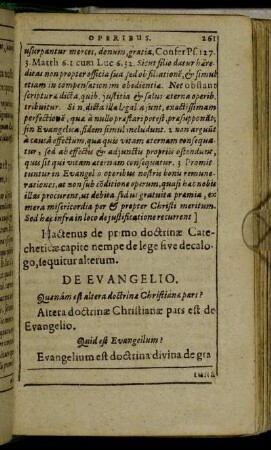 OPERIBUS. 261
usurpantur merces, donum, gratia, Confer Ps. 127.
3. Matth 6.1 cum Luc 6.32. Sicut filio datur hære-
ditas non propter officia sua sed ob filiationē, & simul
etiam in compensationem obedientia. Nec obstant
Scriptura dicta, quib. justitia & salus æterna operib.
tribuitur. Si n. dicta illa legalia sunt, exactissimam
perfectionē, qua à nullo præstari potest, præsupponūt;
sin Evangelica, fidem simul includunt. 2 non arguūt
à causâ effectum, qua quis vitam æternam consequa-
tur, sed ab effectu & adjunctis propriis ostendunt,
quis sit qui vitam æternam consequatur. 3 Promit-
tuntur in Evangel o operibus nostris bonis remune-
rationes, at non sub cōditione operum, quasi hac nobis
illas procurent, ut debita, sed ut gratuita præmia, ex
mera misericordia per & propter Christi meritum.
Sed hac infra in loco de justificatione recurrent]
Hactenus de primo doctrinæ Cate-
cheticæ capite nempe de lege sive decalo-
go, sequitur alterum.
DE EVANGELIO.
Quænam est altera doctrina Christiana pars?
Altera doctrinæ Christianæ pars est de
Evangelio.
Quid est Evangelium?
Evangelium est doctrina divina de gra